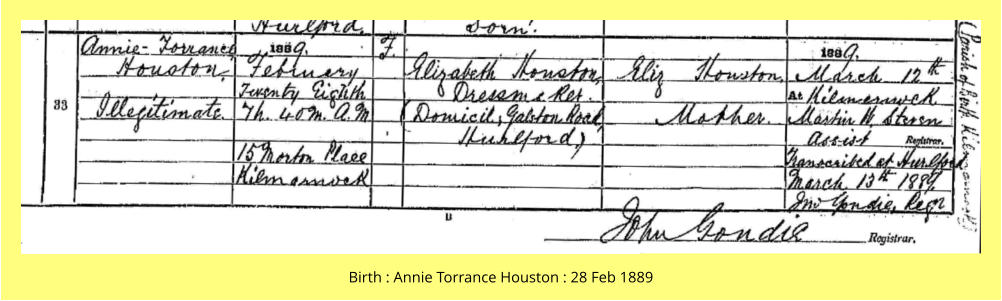 Hurlford. Born.
Annie Torrance 1889. F. 1889.
Houston, February Elizabeth Houston, Eliz Houston. March 12th
Twenty Eighth Dressmaker. At Kilmarnock
33 Illegitimate. 7h. 40m. A.M (Domicil, Galston Road, Mother. Martin W. Steven
Hurlford) Assist Registrar.
15 Morton Place Transcribed at Hurlford
Kilmarnock March 13th 1889.
Jno Gondie, Regr
(Parish of Birth Kilmarnock)
John Gondie Registrar.
Birth : Annie Torrance Houston : 28 Feb 1889